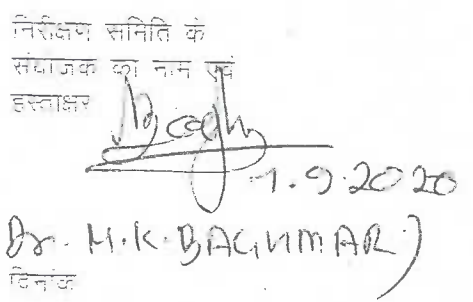 निरीक्षण समिति के
संयोजक का नाम एवं
हस्ताक्षर
1.9.2020
Dr. M.K. BAGHMAR)
दिनांक